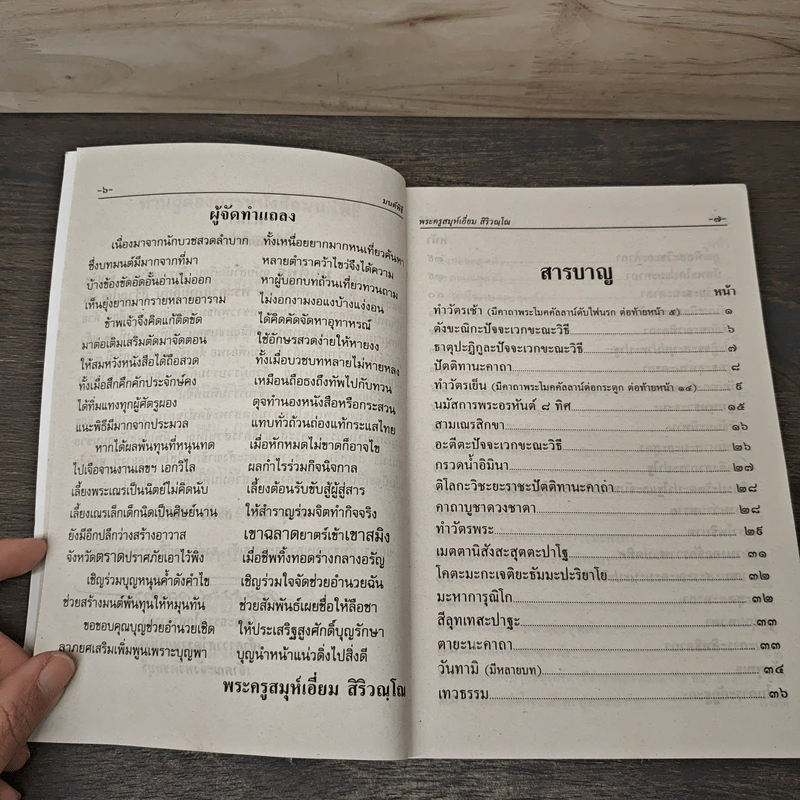 -๖-
มนต์พิธี
ผู้จัดทำแถลง
เนื่องมาจากนักบวชสวดลำบาก ทั้งเหนื่อยยากมากหนเที่ยวค้นหา
ซึ่งบทมนต์มีมากจากที่มา หลายตำราคว้าไขว่จึงได้ความ
บ้างข้องขัดอัดอั้นอ่านไม่ออก หาผู้บอกบทถ้วนเที่ยวทวนถาม
เห็นยุ่งยากมากรายหลายอาราม ไม่งอกงามงอแงบ้างแง่งอน
ข้าพเจ้าจึงคิดแก้ติดขัด ได้คิดคัดจัดหาอุทาหรณ์
มาต่อเติมเสริมตัดมาจัดตอน ใช้อักษรสวดง่ายให้หายงง
ให้สมหวังหนังสือได้ถือสวด ทั้งเมื่อบวชบทหลายไม่หายหลง
ทั้งเมื่อสึกคึกคักประจักษ์คง เหมือนถือธงถึงทัพไปกับทวน
ได้ทิ่มแทงทุกผู้ศัตรูผอง ดุจทำนองหนังสือหรือกระสวน
แนะพิธีมีมากจากประมวล แทบทั่วถ้วนถ่องแท้กระแสไทย
หากได้ผลพ้นทุนที่หนุนทด เมื่อหักหมดไม่ขาดก็อาจไข
ไปเจือจานงานเลขฯ เอกวิไล ผลกำไรร่วมกิจนิจกาล
เลี้ยงพระเณรเป็นนิตย์ไม่คิดนับ เลี้ยงต้อนรับขับสู้ผู้สู่สาร
เลี้ยงเณรเล็กเด็กนิดเป็นศิษย์นาน ให้สำราญร่วมจิตทำกิจจริง
ยังมีอีกปลีกว่างสร้างอาวาส เขาฉลาดตรยาตร์เข้าเขาสมิง
จังหวัดตราดปราศภัยเอาไว้พิง เมื่อชีพทิ้งทอดร่างกลางอรัญ
เชิญร่วมบุญหนุนค้ำดังคำไข เชิญร่วมใจจัดช่วยอำนวยฉัน
ช่วยสร้างมนต์พ้นทุนให้หมุนทัน ช่วยสัมพันธ์เผยชื่อให้ลือชา
ขอขอบคุณบุญช่วยอำนวยเชิด ให้ประเสริฐสูงศักดิ์บุญรักษา
ลาภยศเสริมเพิ่มพูนเพราะบุญพา บุญนำหน้าแน่วดิ่งไปสิ่งดี
พระครูสมุห์เอี่ยม สิริวณฺโณ
พระครูสมุห์เอี่ยม สิริวณฺโณ
-๗-
สารบาญ
หน้า
ทำวัตรเช้า (มีคาถาพระโมคคัลลาน์ดับไฟนรก ต่อท้ายหน้า ๕) ๑
ตังขะณิกะปัจจะเวกขะณะวิธี ๖
ธาตุปะฏิกูละปัจจะเวกขะณะวิธี ๗
ปัตติทานะคาถา ๘
ทำวัตรเย็น (มีคาถาพระโมคคัลลาน์ต่อกระดูก ต่อท้ายหน้า ๑๔) ๙
นมัสการพระอรหันต์ ๘ ทิศ ๑๕
สามเณรสิกขา ๑๖
อะตีตะปัจจะเวกขะณะวิธี ๒๖
กรวดน้ำอิมินา ๒๗
ติโลกะวิชะยะราชะปัตติทานะคาถา ๒๘
คาถาบูชาดวงชาตา ๒๘
ทำวัตรพระ ๒๙
เมตตานิสังสะสุตตะปาโฐ ๓๑
โคตะมะกะเจติยะธัมมะปะริยาโย ๓๒
มะหาการุณิโก ๓๒
สีลุทเทสะปาฐะ ๓๓
ตายะนะคาถา ๓๓
วันทามิ (มีหลายบท) ๓๔
เทวธรรม ๓๖